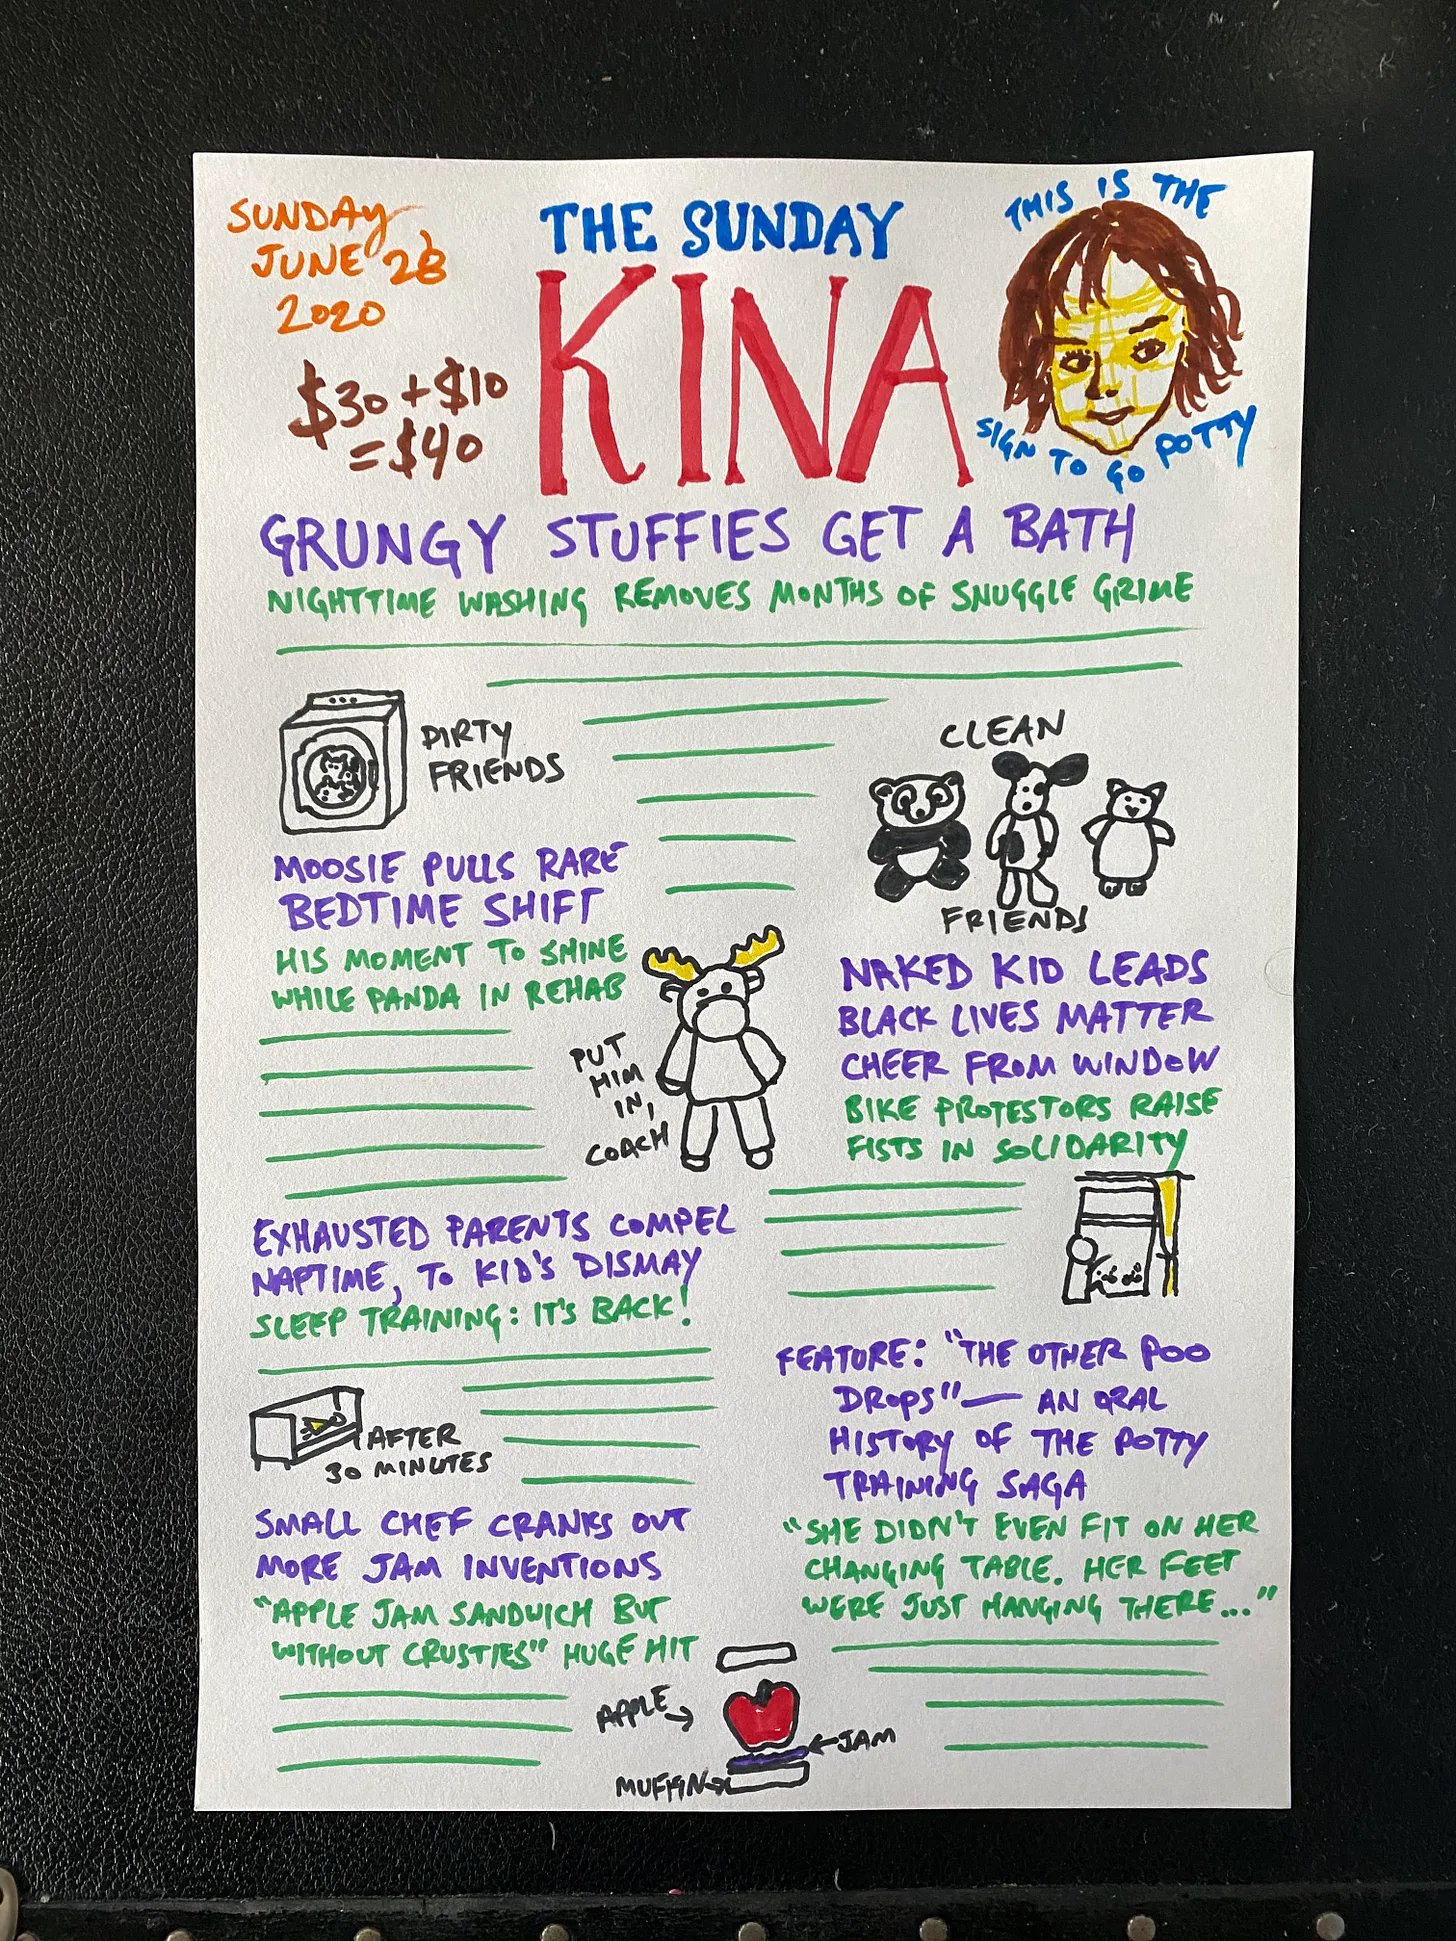 SUNDAY,
JUNE 28
2020
$30 + $10
= $40
THE SUNDAY
KINA
THIS IS THE
SIGN TO GO POTTY
GRUNGY STUFFIES GET A BATH
NIGHTTIME WASHING REMOVES MONTHS OF SNUGGLE GRIME
DIRTY
FRIENDS
CLEAN
FRIENDS
MOOSIE PULLS RARE
BEDTIME SHIFT
HIS MOMENT TO SHINE
WHILE PANDA IN REHAB
PUT
HIM
IN,
COACH
NAKED KID LEADS
BLACK LIVES MATTER
CHEER FROM WINDOW
BIKE PROTESTORS RAISE
FISTS IN SOLIDARITY
EXHAUSTED PARENTS COMPEL
NAPTIME, TO KID'S DISMAY
SLEEP TRAINING: IT'S BACK!
AFTER
30 MINUTES
FEATURE: "THE OTHER POO
DROPS" — AN ORAL
HISTORY OF THE POTTY
TRAINING SAGA
"SHE DIDN'T EVEN FIT ON HER
CHANGING TABLE. HER FEET
WERE JUST HANGING THERE..."
SMALL CHEF CRANKS OUT
MORE JAM INVENTIONS
"APPLE JAM SANDWICH BUT
WITHOUT CRUSTIES" HUGE HIT
APPLE →
← JAM
MUFFIN →